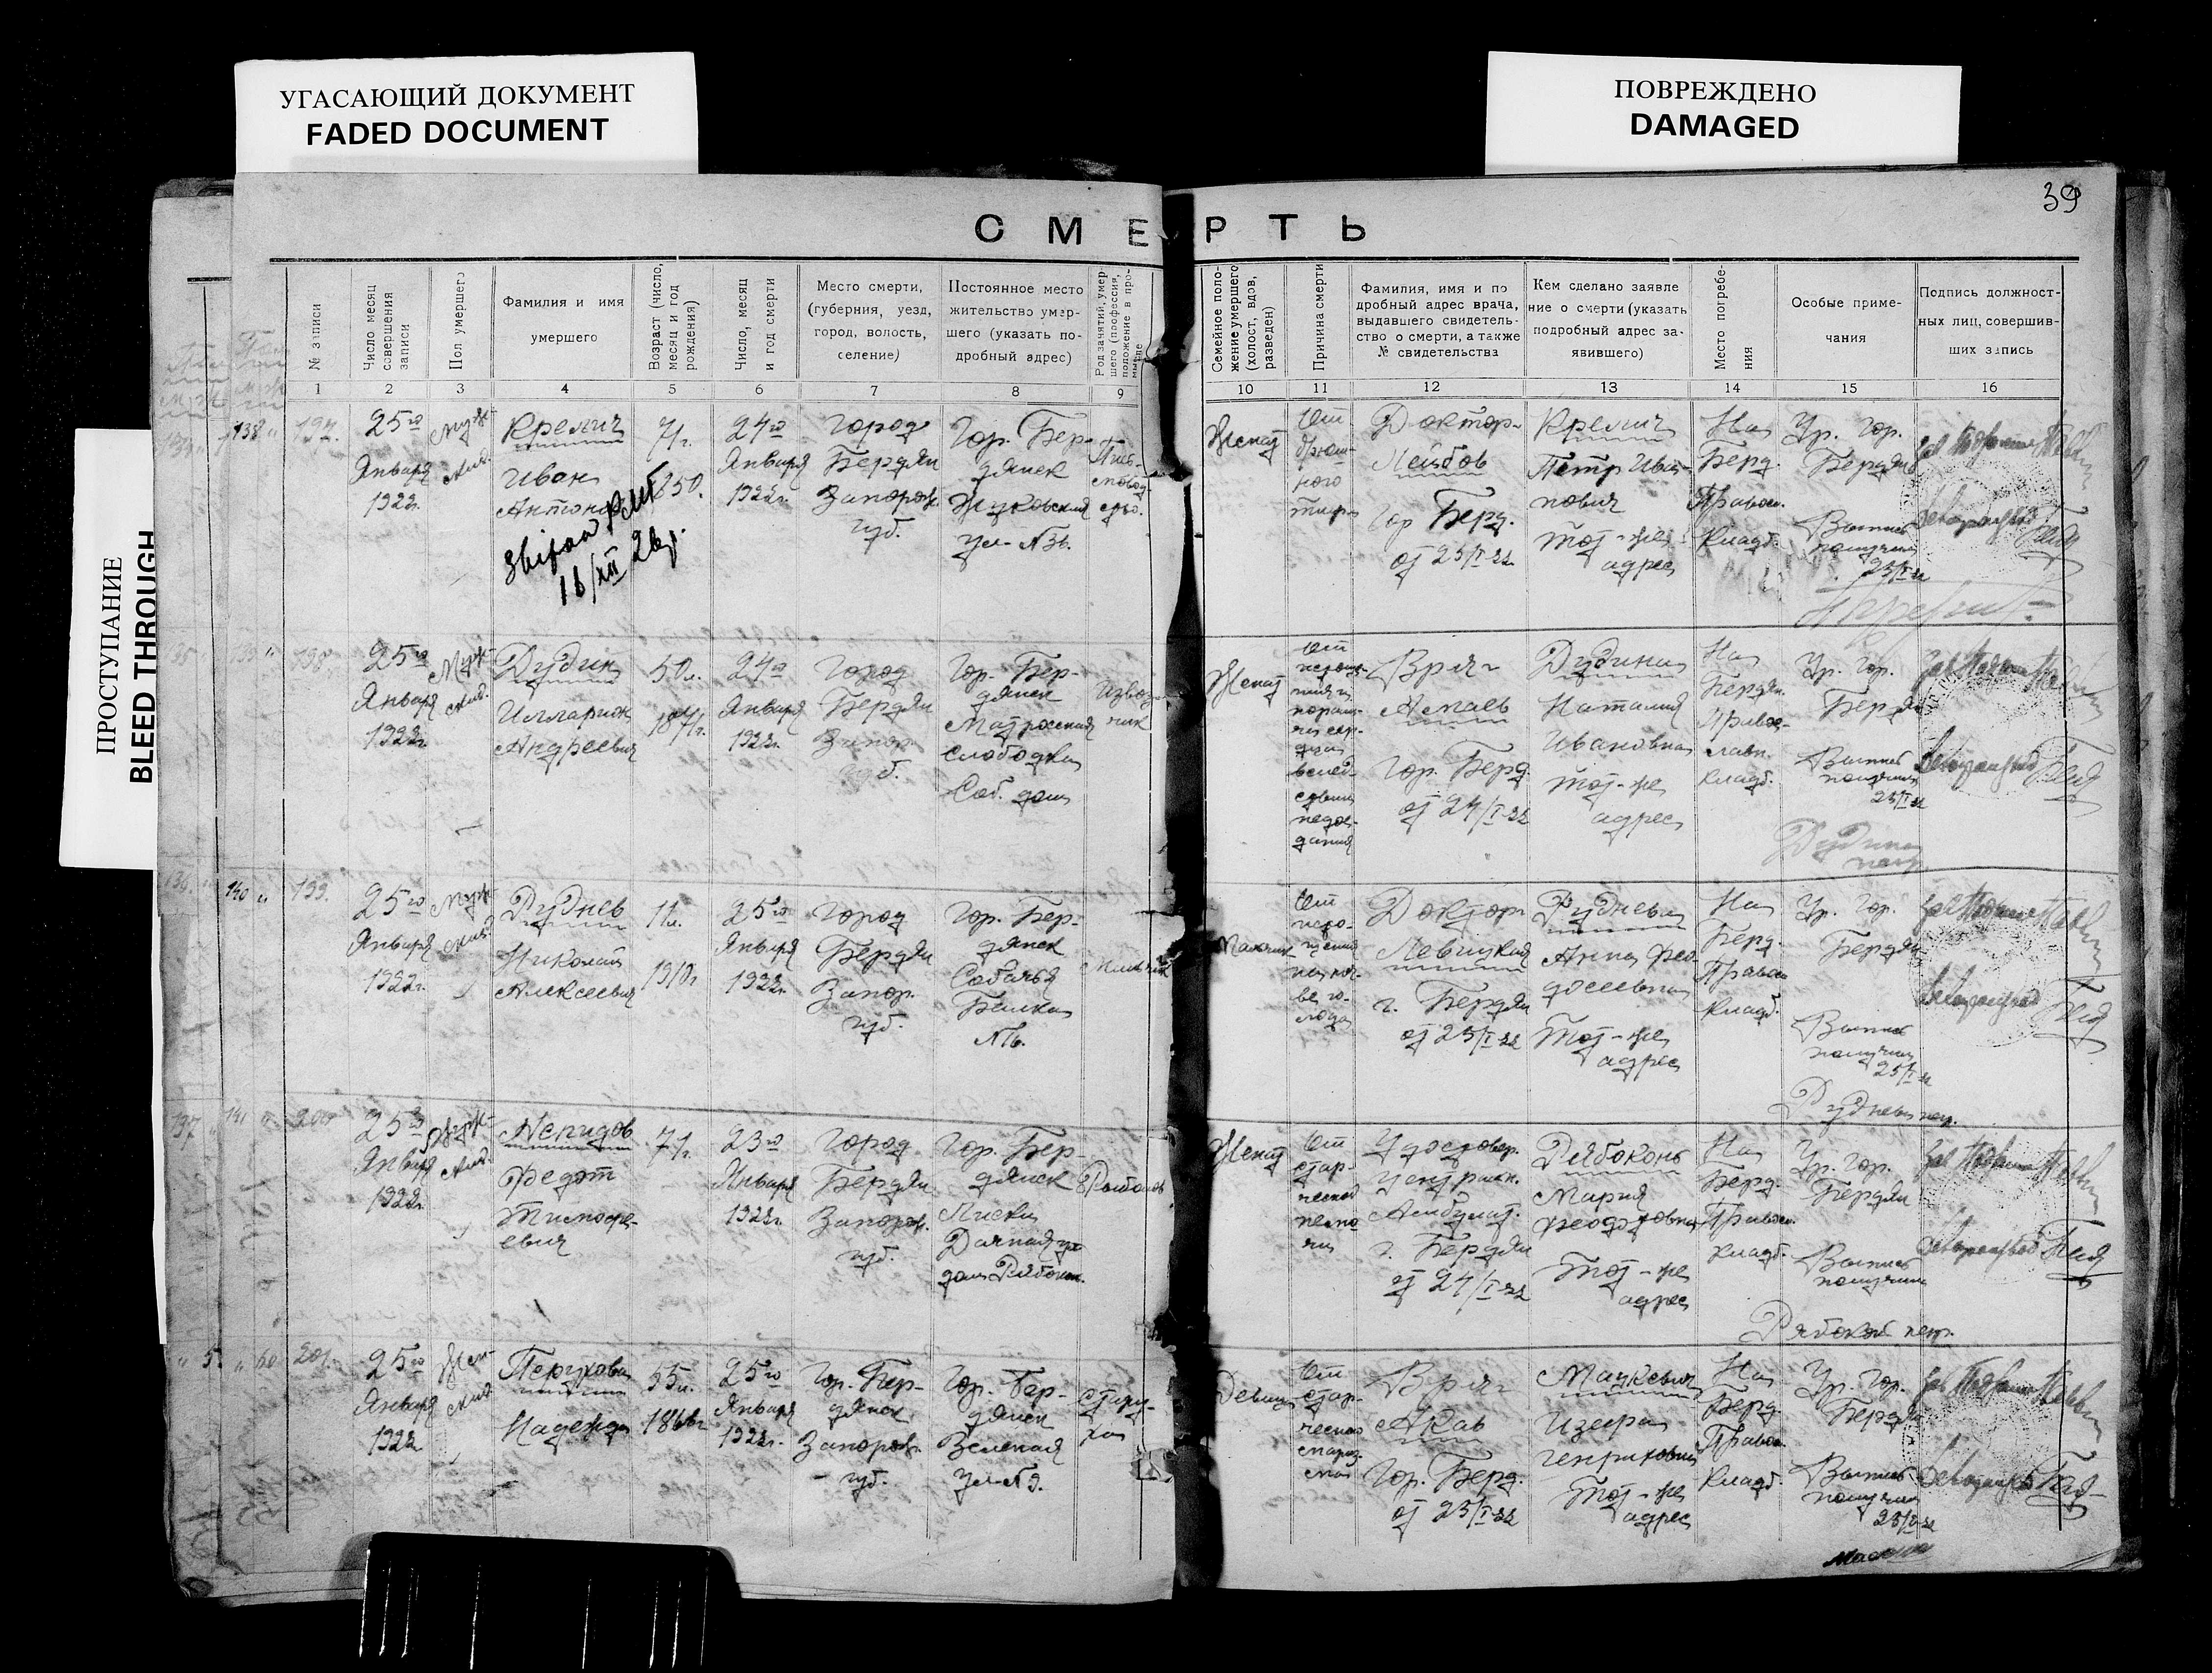 УГАСАЮЩИЙ ДОКУМЕНТ
FADED DOCUMENT
ПОВРЕЖДЕНО
DAMAGED
ПРОСТУПАНИЕ
BLEED THROUGH
39
СМЕРТЬ
№ записи
Число месяц
совершения
записи
Пол умершего
Фамилия и имя
умершего
Возраст (число,
месяц и год
рождения)
Число, месяц
и год смерти
Место смерти,
(губерния, уезд,
город, волость,
селение)
Постоянное место
жительство умер-
шего (указать по-
дробный адрес)
Род занятий, умер-
шего (профессия,
положение в про-
мысле
Семейное поло-
жение умершего
(холост, вдов,
разведен)
Причина смерти
Фамилия, имя и по
дробный адрес врача,
выдавшего свидетель-
ство о смерти, а также
№ свидетельства
Кем сделано заявле
ние о смерти (указать
подробный адрес за-
явившего)
Место погребе-
ния
Особые приме-
чания
Подпись должност-
ных лиц, совершив-
ших запись
1 2 3 4 5 6 7 8 9 10 11 12 13 14 15 16
138 "
197.
25го
Января
1922г.
Муж-
ской.
Крелич
Иван
Антонов
71г.
1850.
16/XII 26р.
24го
Января
1922г.
Город
Бердян
Запорож.
губ.
Гор. Бер-
дянск
Жуковская
ул. №36.
Женат
От
брюш-
ного
тифа
Доктор
Лейбов
гор Берд.
от 25/I-22
Крелич
Петр Ива-
нович
Тот-же
адрес
На
Берд.
Правос.
кладб.
Ур. гор.
Бердян
Выпись
получил
25/I-22
139 "
198
25го
Января
1922г.
Муж-
ской.
Дудин
Илларион
Андреевич
50л.
1871г.
24го
Января
1922г.
Город
Бердян
Запор.
губ.
Гор. Бер-
дянск
Матросская
слободка
Соб. дом
Извоз-
чик
Женат
Врач
гор. Берд.
от 24/I-22
Дудина
Наталия
Ивановна
Тот-же
адрес
На
Бердян.
Правос-
лавн.
кладб.
Ур. гор.
Бердян
Выпись
получил
25/I-22
Дудина
140 "
199.
25го
Января
1922г.
Муж-
ской
Руднев
Николай
Алексеевич
11л.
1910г
25го
Января
1922г.
Город
Бердян
Запор.
губ.
Гор. Бер-
дянск
Собачья
Балка
№6.
Мальчик
Доктор
Левицкая
г. Бердян
от 25/I-22
Руднева
Анна Фео
досиевна
Тот-же
адрес
На
Берд.
Правос
кладб.
Ур. гор.
Бердян
Выпись
получил
25/I-22
Руднева
137
141 "
200
25го
Января
1922г.
Муж-
ской.
Федот
Тимофе-
евич
71г.
23го
Января
1922г.
Город
Бердян
Запорож.
губ.
Гор. Бер-
дянск
Лиски
Дачная ул
дом Рябокон.
Женат
От
стар-
ческой
немо
чи
Удостовер.
Централн.
Амбулат.
г. Бердян
от 24/I-22
Рябоконь
Мария
Феодотовна
Тот-же
адрес
На
Берд.
Правос.
кладб.
Ур. гор.
Бердян
Выпись
получил
" 5.
" 60.
201.
25го
Января
1922
Жен-
ский
Перукова
Надежда
55л.
1866г
25го
Января
1922г.
Гор. Бер-
дянск
Запорож.
губ.
Гор. Бер-
дянск
Зеленая
ул. №9.
стару-
ха
Девица
От
стар-
ческого
мараз-
ма
Врач
Гор. Берд.
от 25/I-22
Мацкевич
Генриховна
Тот-же
адрес
На
Берд.
Правос.
кладб.
Ур. гор.
Бердян
Выпись
получил
25/I-22